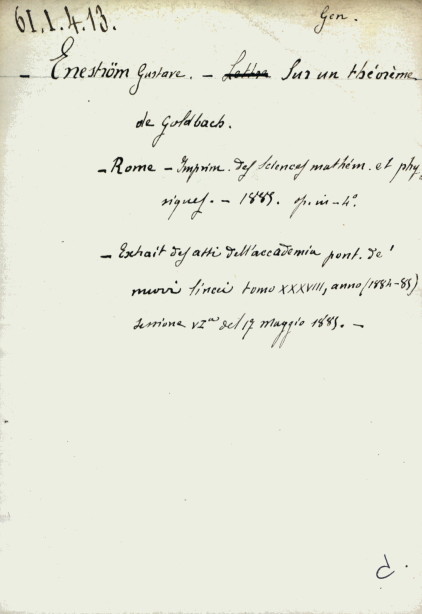 61.1.4.13.
Gen.
- Eneström Gustave. - Lettre Sur un théorème
de Goldbach.
- Rome - Imprim. des sciences mathém. et phy
siques. - 1885. op. in-4°.
- Extrait des atti dell'accademia pont. de'
nuovi lincei tomo XXXVIII, anno (1884-85)
sessione VIa del 17 maggio 1885. -